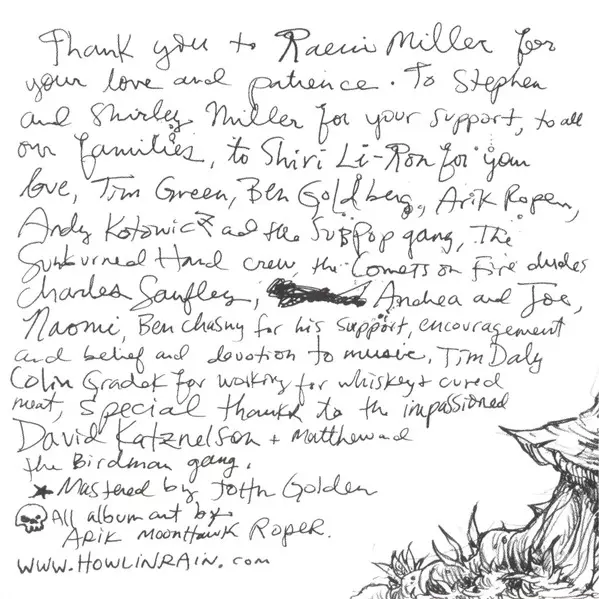 Thank you to Raeni Miller for
your love and patience. To Stephen
and Shirley Miller for your support, to all
our families, to Shiri Li-Ron for your
love, Tim Green, Ben Goldberg, Arik Roper,
Andy Kotowicz and the SUBPOP gang, The
Sunburned Hand crew, the Comets on Fire dudes
Charles Saufley, Andrea and Joe,
Naomi, Ben Chasny for his support, encouragement
and belief and devotion to music, Tim Daly
Colin Gradek for working for whiskey + cured
meat, special thanks to the impassioned
David Katznelson + Matthew and
the Birdman gang.
★ Mastered by JOHN Golden
All album art by
ARIK MOONHAWK ROPER.
WWW.HOWLINRAIN.com